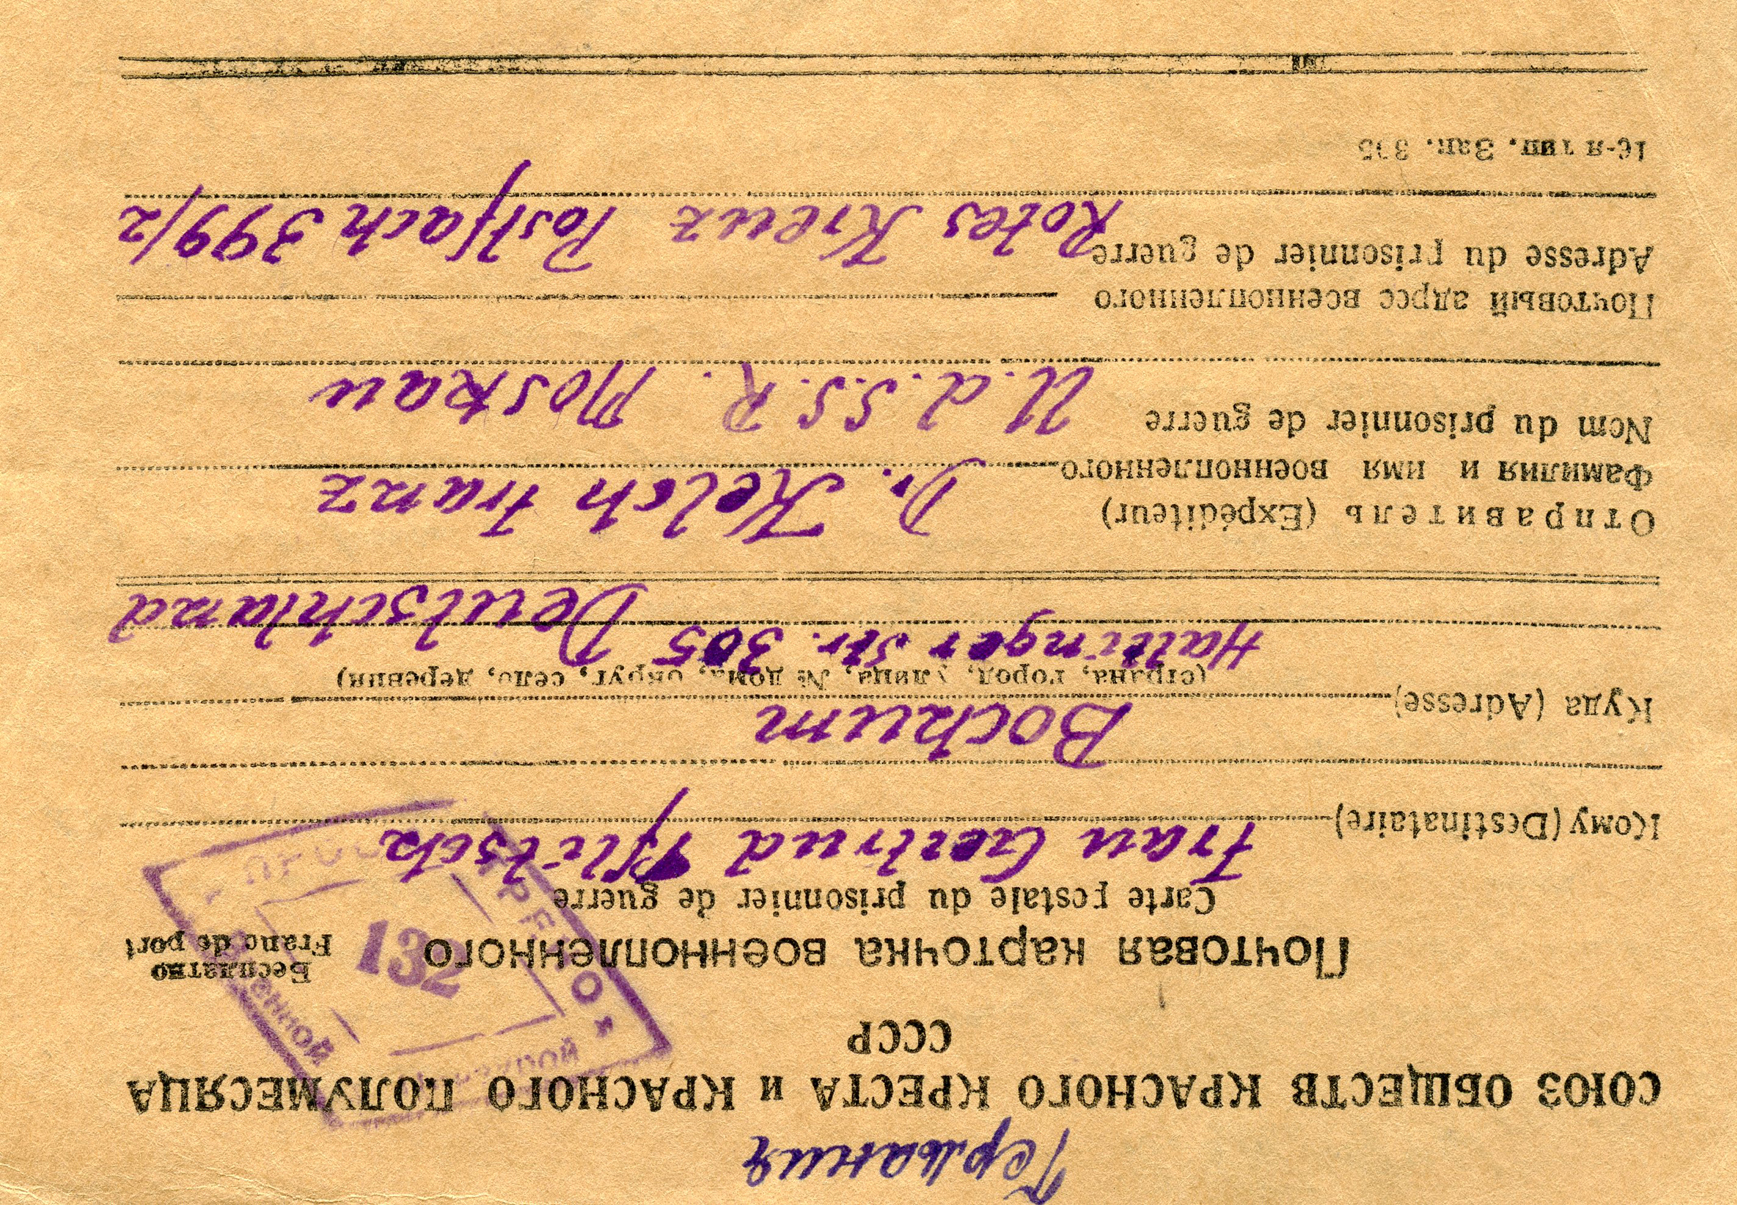 Германия
СОЮЗ ОБЩЕСТВ КРАСНОГО КРЕСТА и КРАСНОГО ПОЛУМЕСЯЦА
СССР
Почтовая карточка военнопленного
Бесплатно
Franc de port
Carte postale du prisonnier de guerre
132
Кому (Destinataire) Frau Gertrud Pflitsch
Bochum
Куда (Adresse)
(страна, город, улица, № дома, округ, село, деревня)
Hattinger Str. 305 Deutschland
Отправитель (Expéditeur)
Фамилия и имя военнопленного Dr. Kelch Franz
Nom du prisonnier de guerre
U.d.S.S.R. Moskau
Почтовый адрес военнопленного
Adresse du prisonnier de guerre Rotes Kreuz Postfach 399/2
16-я тип. Зак. 395